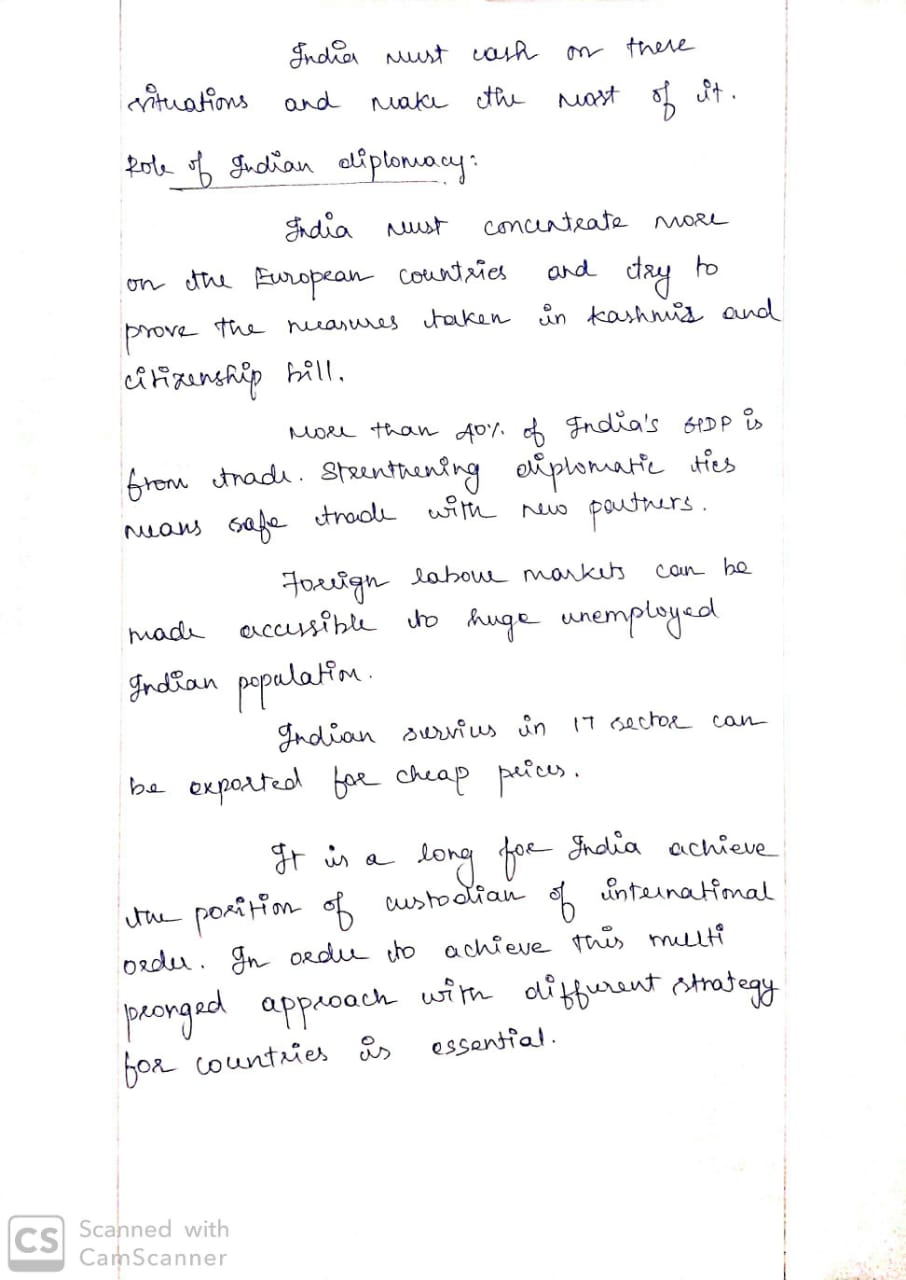 India must cash on there
situations and make the most of it.
Role of Indian diplomacy:
India must concentrate more
on the European countries and try to
prove the measures taken in Kashmir and
citizenship bill.
More than 40% of India's GDP is
from trade. Strenthening diplomatic ties
means safe trade with new partners.
Foreign labour markets can be
made accessible to huge unemployed
Indian population.
Indian services in IT sector can
be exported for cheap prices.
It is a long for India achieve
the position of custodian of international
order. In order to achieve this multi
pronged approach with different strategy
for countries is essential.
CS Scanned with
CamScanner